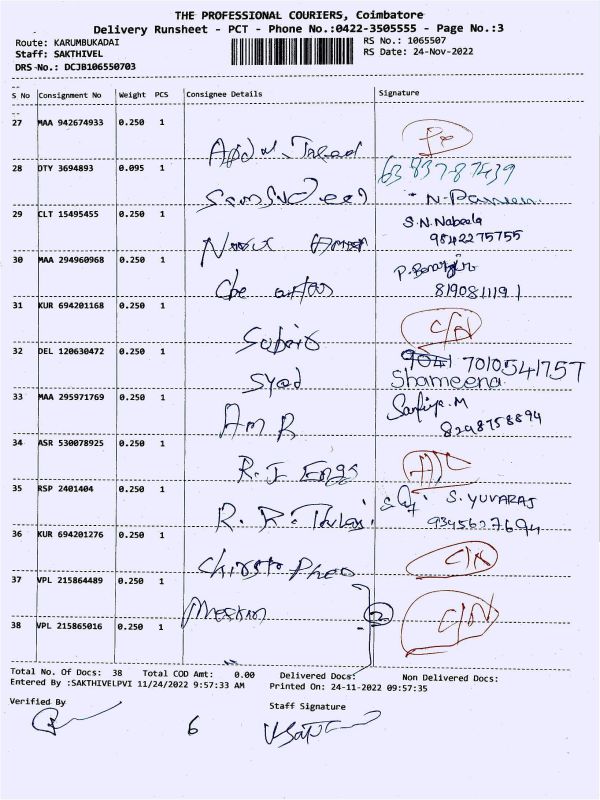 THE PROFESSIONAL COURIERS, Coimbatore
Delivery Runsheet - PCT - Phone No.:0422-3505555 - Page No.:3
Route: KARUMBUKADAI RS No.: 1065507
Staff: SAKTHIVEL RS Date: 24-Nov-2022
DRS-No.: DCJB106550703
S No Consignment No Weight PCS Consignee Details Signature
27 MAA 942674933 0.250 1
28 DTY 3694893 0.095 1
63 837-87439
29 CLT 15495455 0.250 1
S.N. Nabeela
9842275755
30 MAA 294960968 0.250 1
8190811191
31 KUR 694201168 0.250 1
C/N
32 DEL 120630472 0.250 1
Syed 7010541757
Shameena
33 MAA 295971769 0.250 1
Safiya.M
AMR 8248758894
34 ASR 530078925 0.250 1
R.J Engs
35 RSP 2401404 0.250 1
S. YUVARAJ
R. R. Thulasi
36 KUR 694201276 0.250 1
37 VPL 215864489 0.250 1
2
C/N
38 VPL 215865016 0.250 1
Total No. Of Docs: 38 Total COD Amt: 0.00 Delivered Docs: Non Delivered Docs:
Entered By :SAKTHIVELPVI 11/24/2022 9:57:33 AM Printed On: 24-11-2022 09:57:35
Verified By Staff Signature
6